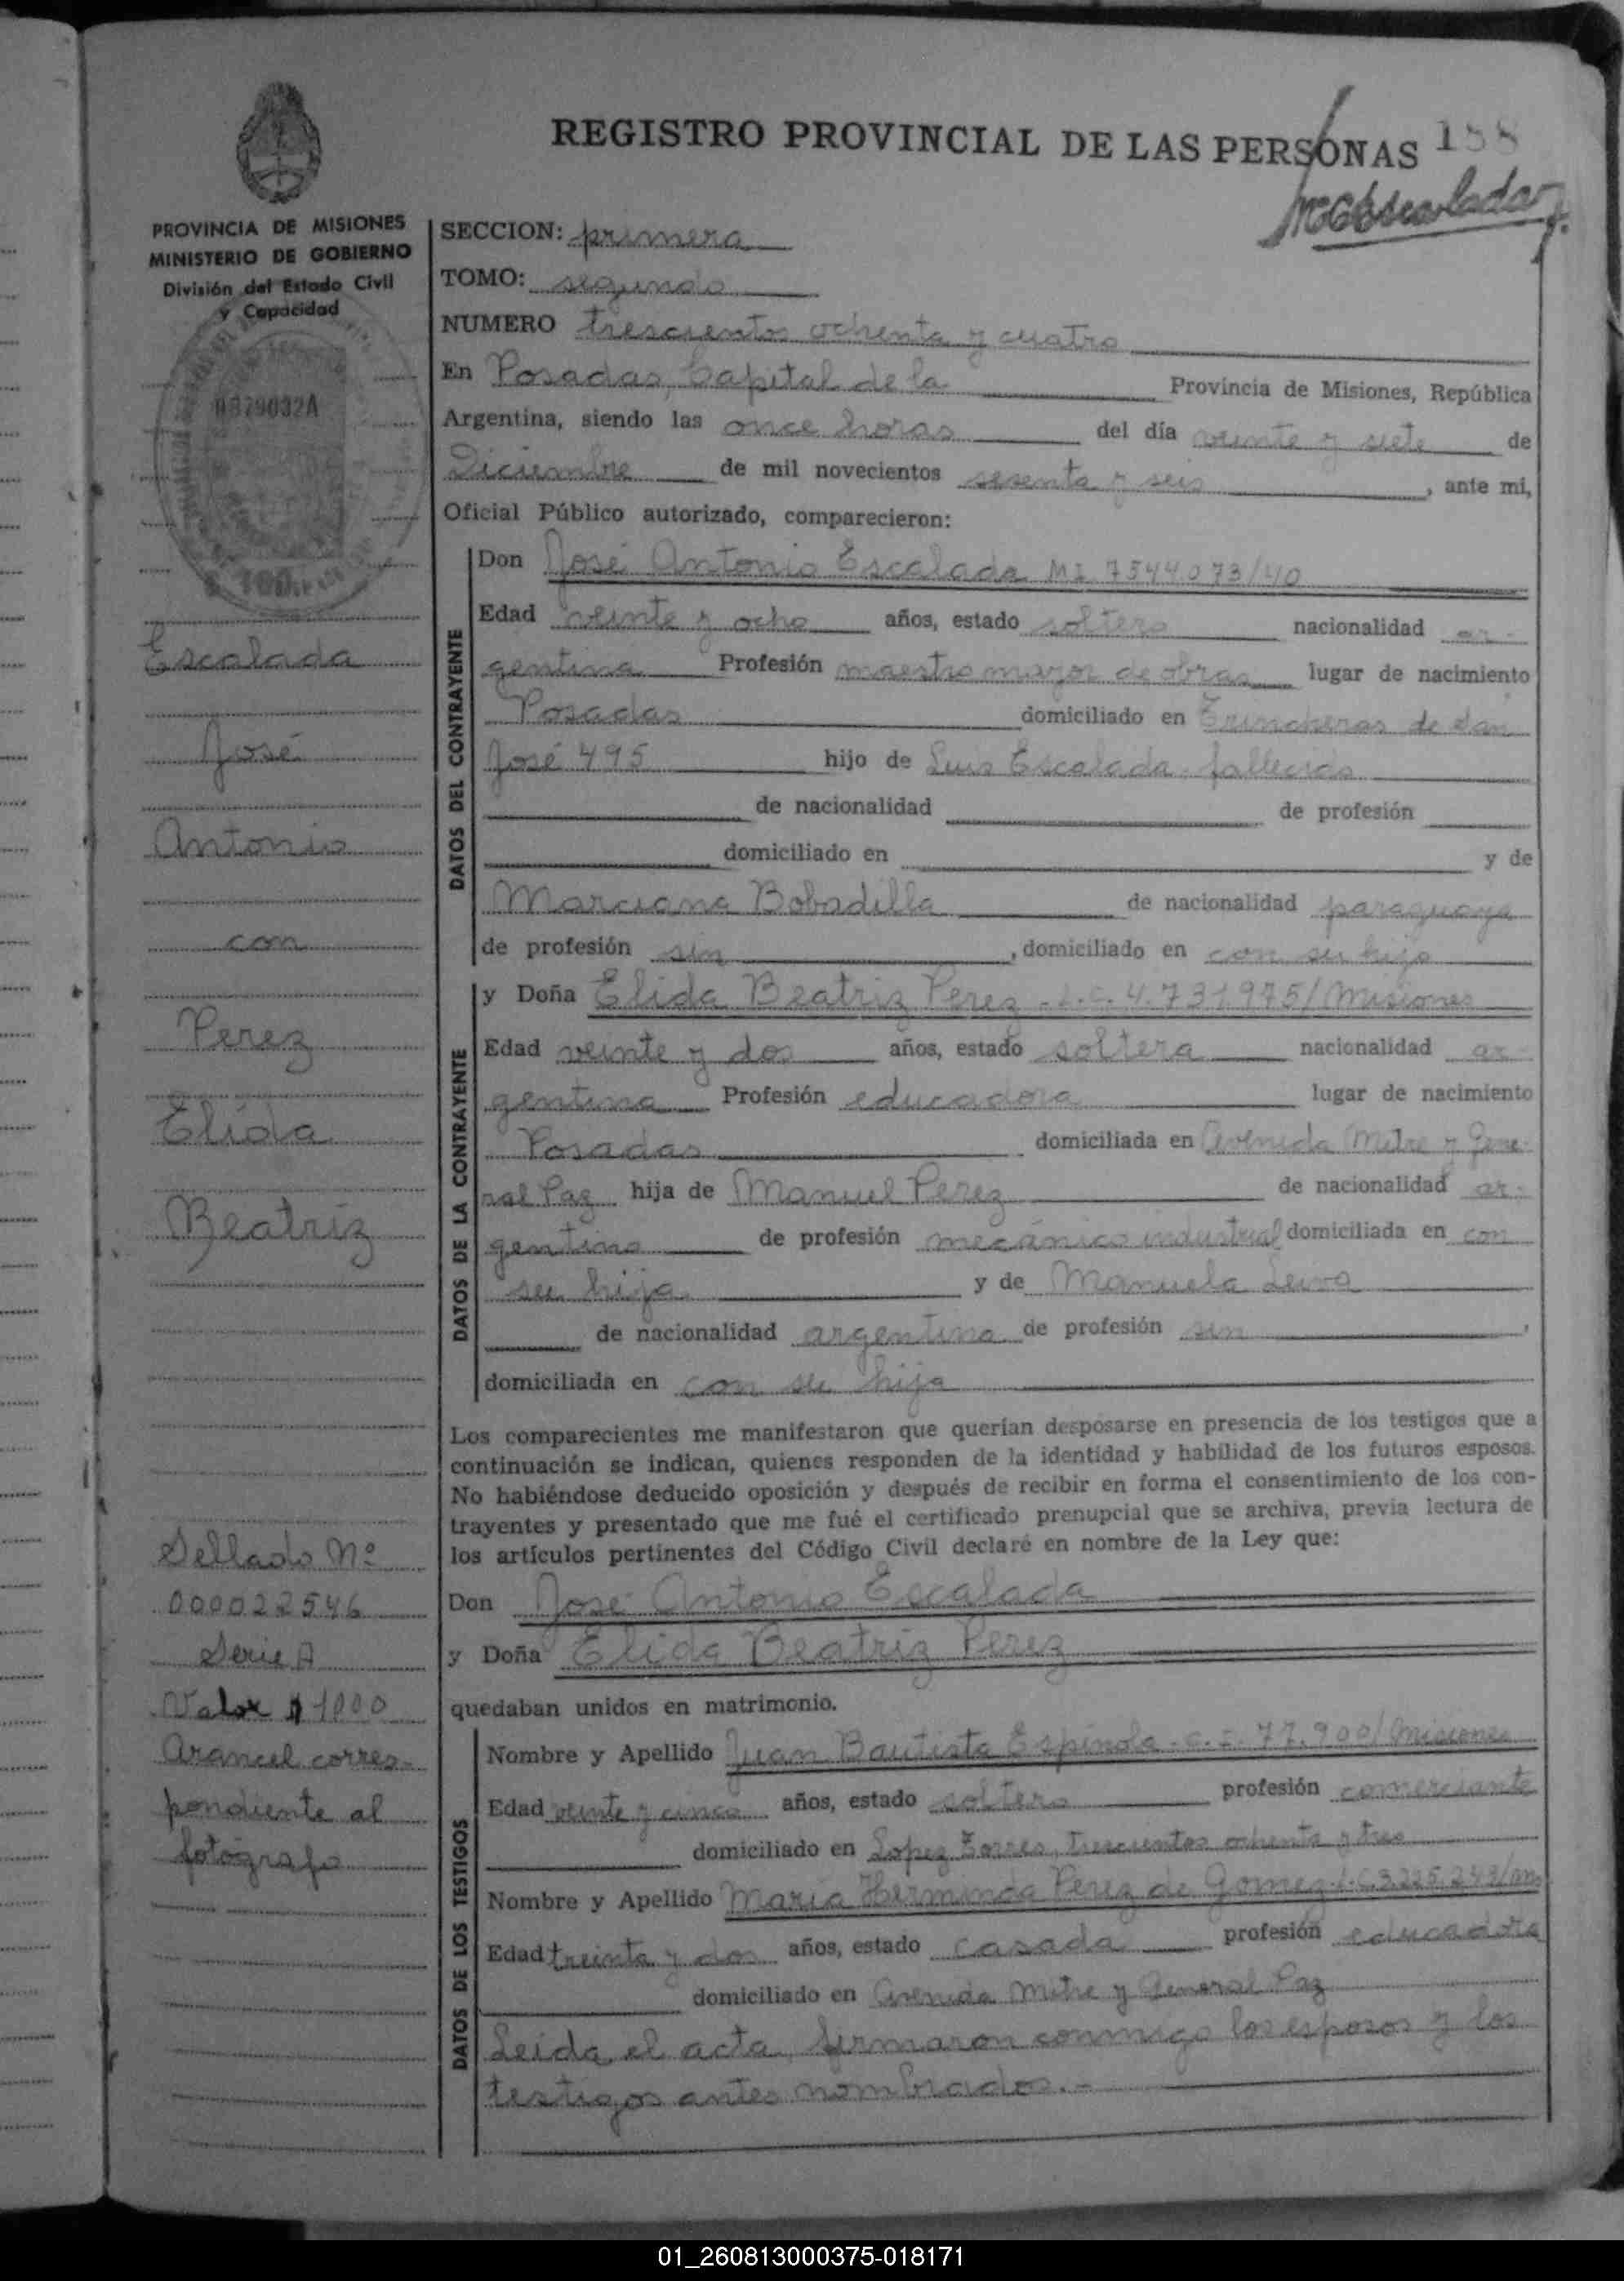 REGISTRO PROVINCIAL DE LAS PERSONAS 188
PROVINCIA DE MISIONES
MINISTERIO DE GOBIERNO
División del Estado Civil
y Capacidad
Escalada
José
Antonio
con
Perez
Elida
Beatriz
Sellado Nº
000022546
Serie A
Valor $ 1000
Arancel corres-
pondiente al
fotógrafo
SECCION: primera
TOMO: segundo
NUMERO trescientos ochenta y cuatro
En Posadas, Capital de la Provincia de Misiones, República
Argentina, siendo las once horas del día veinte y siete de
Diciembre de mil novecientos sesenta y seis, ante mi,
Oficial Público autorizado, comparecieron:
DATOS DEL CONTRAYENTE
Don José Antonio Escalada MI. 7544073/40
Edad veinte y ocho años, estado soltero nacionalidad ar-
gentina Profesión maestro mayor de obras lugar de nacimiento
Posadas domiciliado en Trincheras de San
José 495 hijo de Luis Escalada. fallecido
de nacionalidad de profesión
domiciliado en y de
Marciana Bobadilla de nacionalidad paraguaya
de profesión sin, domiciliado en con su hijo
DATOS DE LA CONTRAYENTE
y Doña Elida Beatriz Perez L.C. 4.731.975/Misiones
Edad veinte y dos años, estado soltera nacionalidad ar-
gentina Profesión educadora lugar de nacimiento
Posadas domiciliada en Avenida Mitre y Gene-
ral Paz hija de Manuel Perez de nacionalidad ar-
gentino de profesión mecánico industrial domiciliada en con
su hija y de Manuela Leiva
de nacionalidad argentina de profesión sin,
domiciliada en con su hija
Los comparecientes me manifestaron que querían desposarse en presencia de los testigos que a
continuación se indican, quienes responden de la identidad y habilidad de los futuros esposos.
No habiéndose deducido oposición y después de recibir en forma el consentimiento de los con-
trayentes y presentado que me fué el certificado prenupcial que se archiva, previa lectura de
los artículos pertinentes del Código Civil declaré en nombre de la Ley que:
Don José Antonio Escalada
y Doña Elida Beatriz Perez
quedaban unidos en matrimonio.
DATOS DE LOS TESTIGOS
Nombre y Apellido Juan Bautista Espínola. C.I. 77.900/Misiones
Edad veinte y cinco años, estado soltero profesión comerciante
domiciliado en Lopez Torres, trescientos ochenta y tres
Nombre y Apellido María Herminda Perez de Gomez L.C. 3.225.243/Mns
Edad treinta y dos años, estado casada profesión educadora
domiciliado en Avenida Mitre y General Paz
Leida el acta, firmaron conmigo los esposos y los
testigos antes nombrados.-
01_260813000375-018171